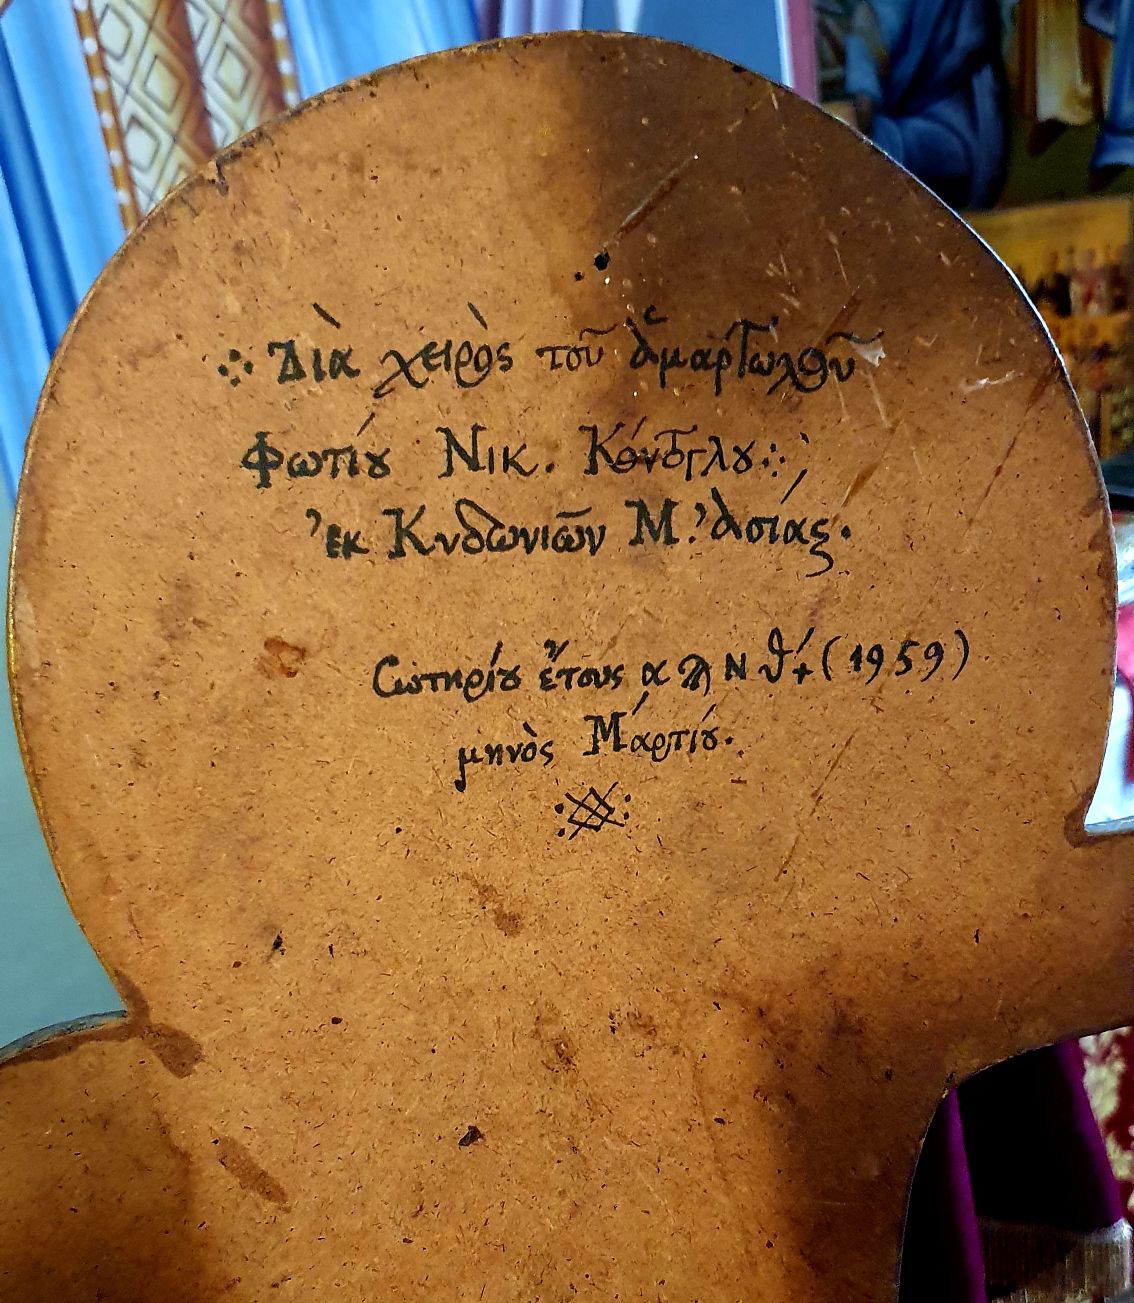 Διὰ χειρὸς τοῦ ἁμαρτωλοῦ
Φωτίου Νικ. Κόντογλου
ἐκ Κυδωνιῶν Μ. Ἀσίας.
Σωτηρίου ἔτους α ϡ ν θ΄ (1959)
μηνὸς Μαρτίου.